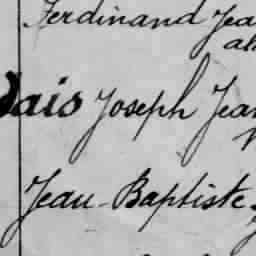 Ferdinand Jea
dais Joseph Jean
Jean-Baptiste